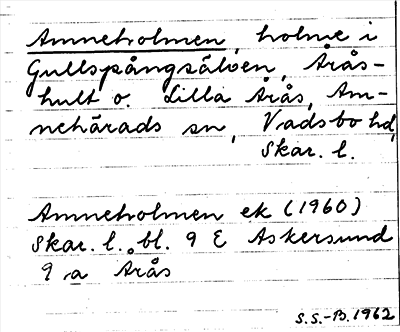 Amneholmen, holme i
Gullspångsälven, Årås-
hult o. Lilla Årås, Am-
nehärads sn, Vadsbo hd,
Skar. l.
Amneholmen ek (1960)
Skar. l. bl. 9 E Askersund
9 a Årås
S.S.-B. 1962